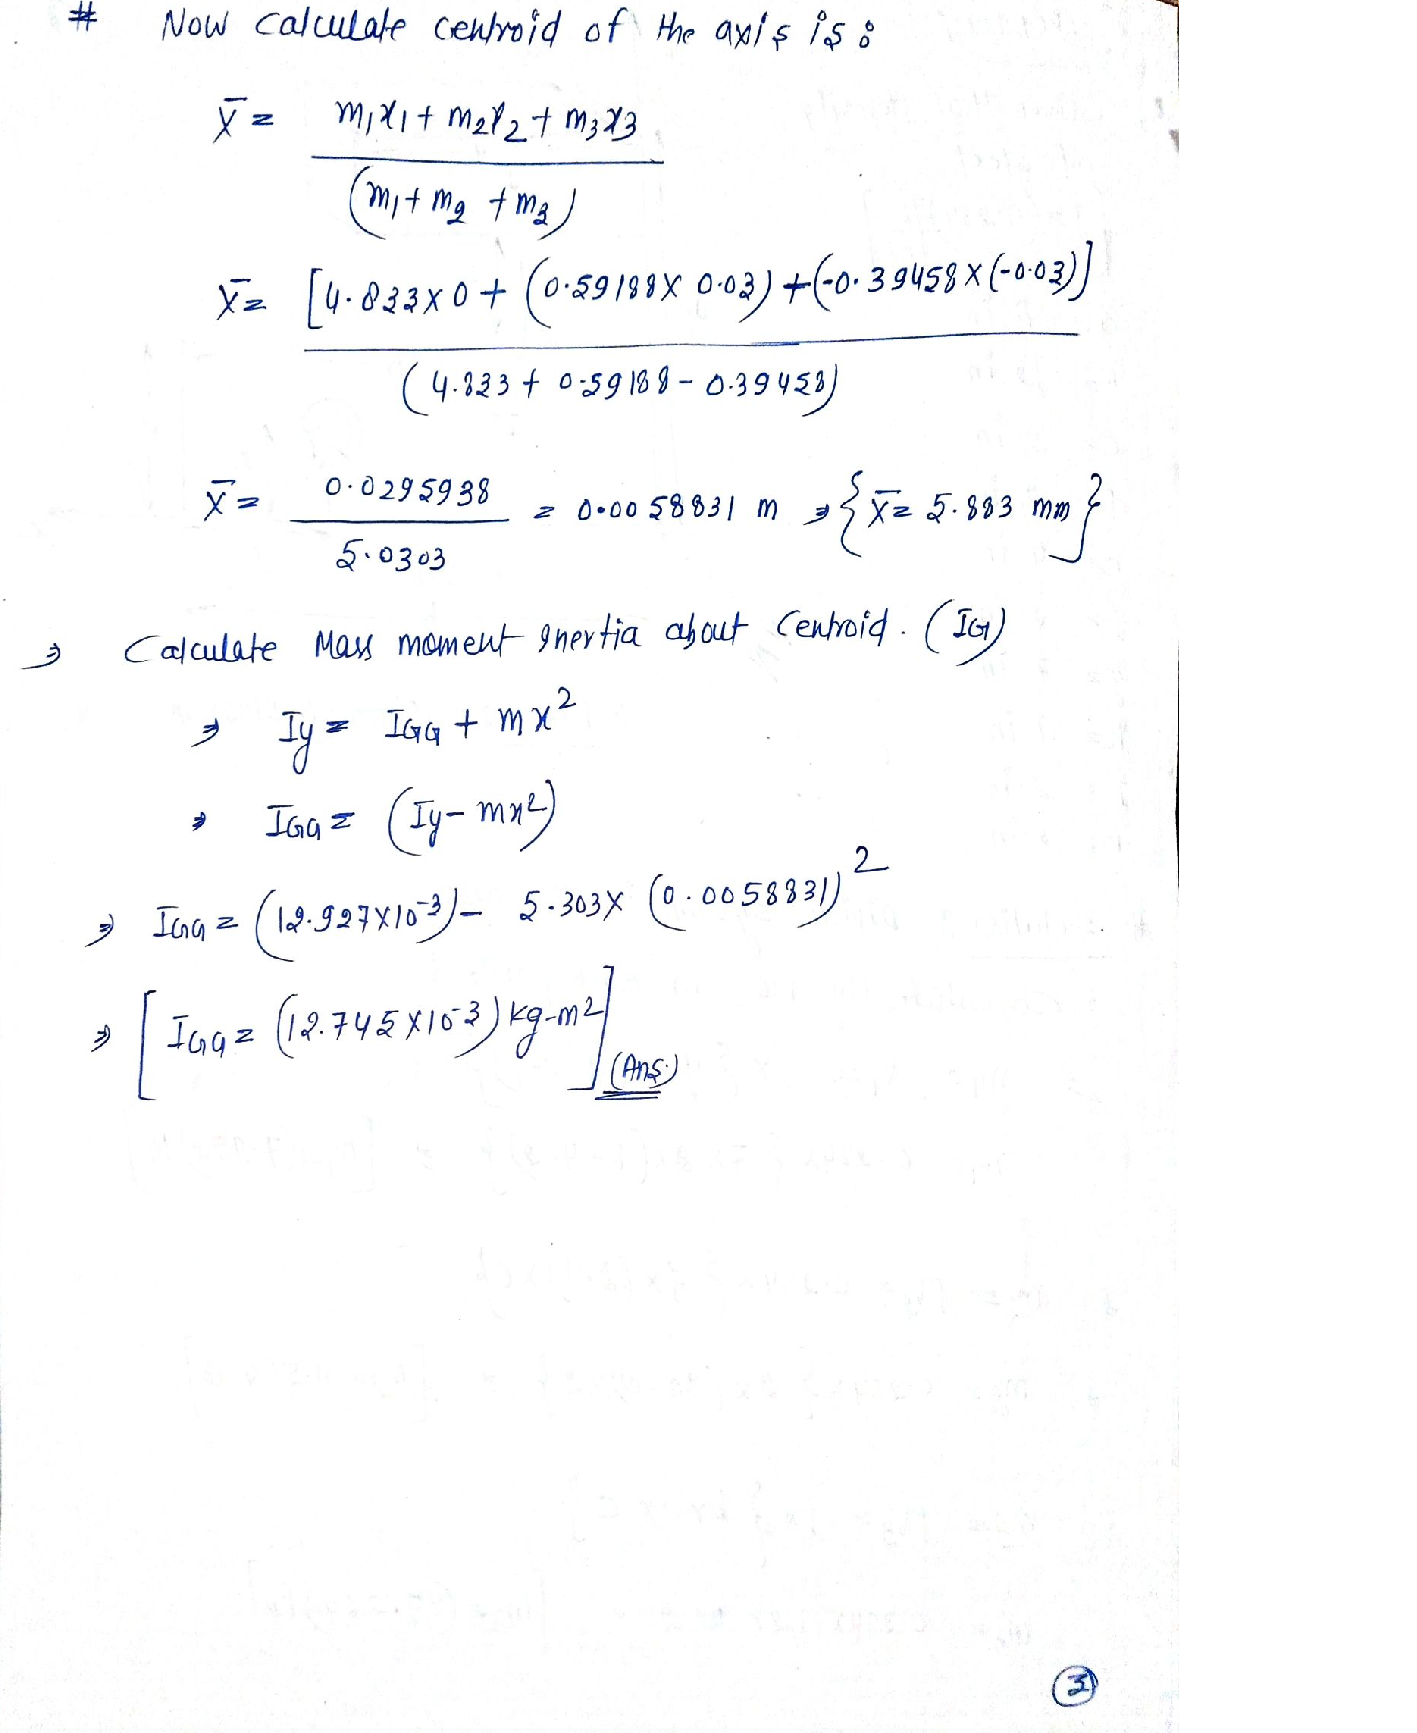 # Now calculate centroid of the axis is :
X̄ = m₁x₁ + m₂x₂ + m₃x₃
(m₁ + m₂ + m₃)
X̄ = [4.833 x 0 + (0.59188 x 0.03) + (-0.39458 x (-0.03))]
(4.833 + 0.59188 - 0.39458)
X̄ = 0.0295938
5.0303
= 0.0058831 m ⇒ {X̄ = 5.883 mm}
⇒ Calculate Mass moment Inertia about Centroid. (IG)
⇒ Iy = IGG + mx²
⇒ IGG = (Iy - mx²)
⇒ IGG = (12.927 x 10⁻³) - 5.303 x (0.0058831)²
⇒ [IGG = (12.745 x 10⁻³) kg-m²] (Ans.)
3